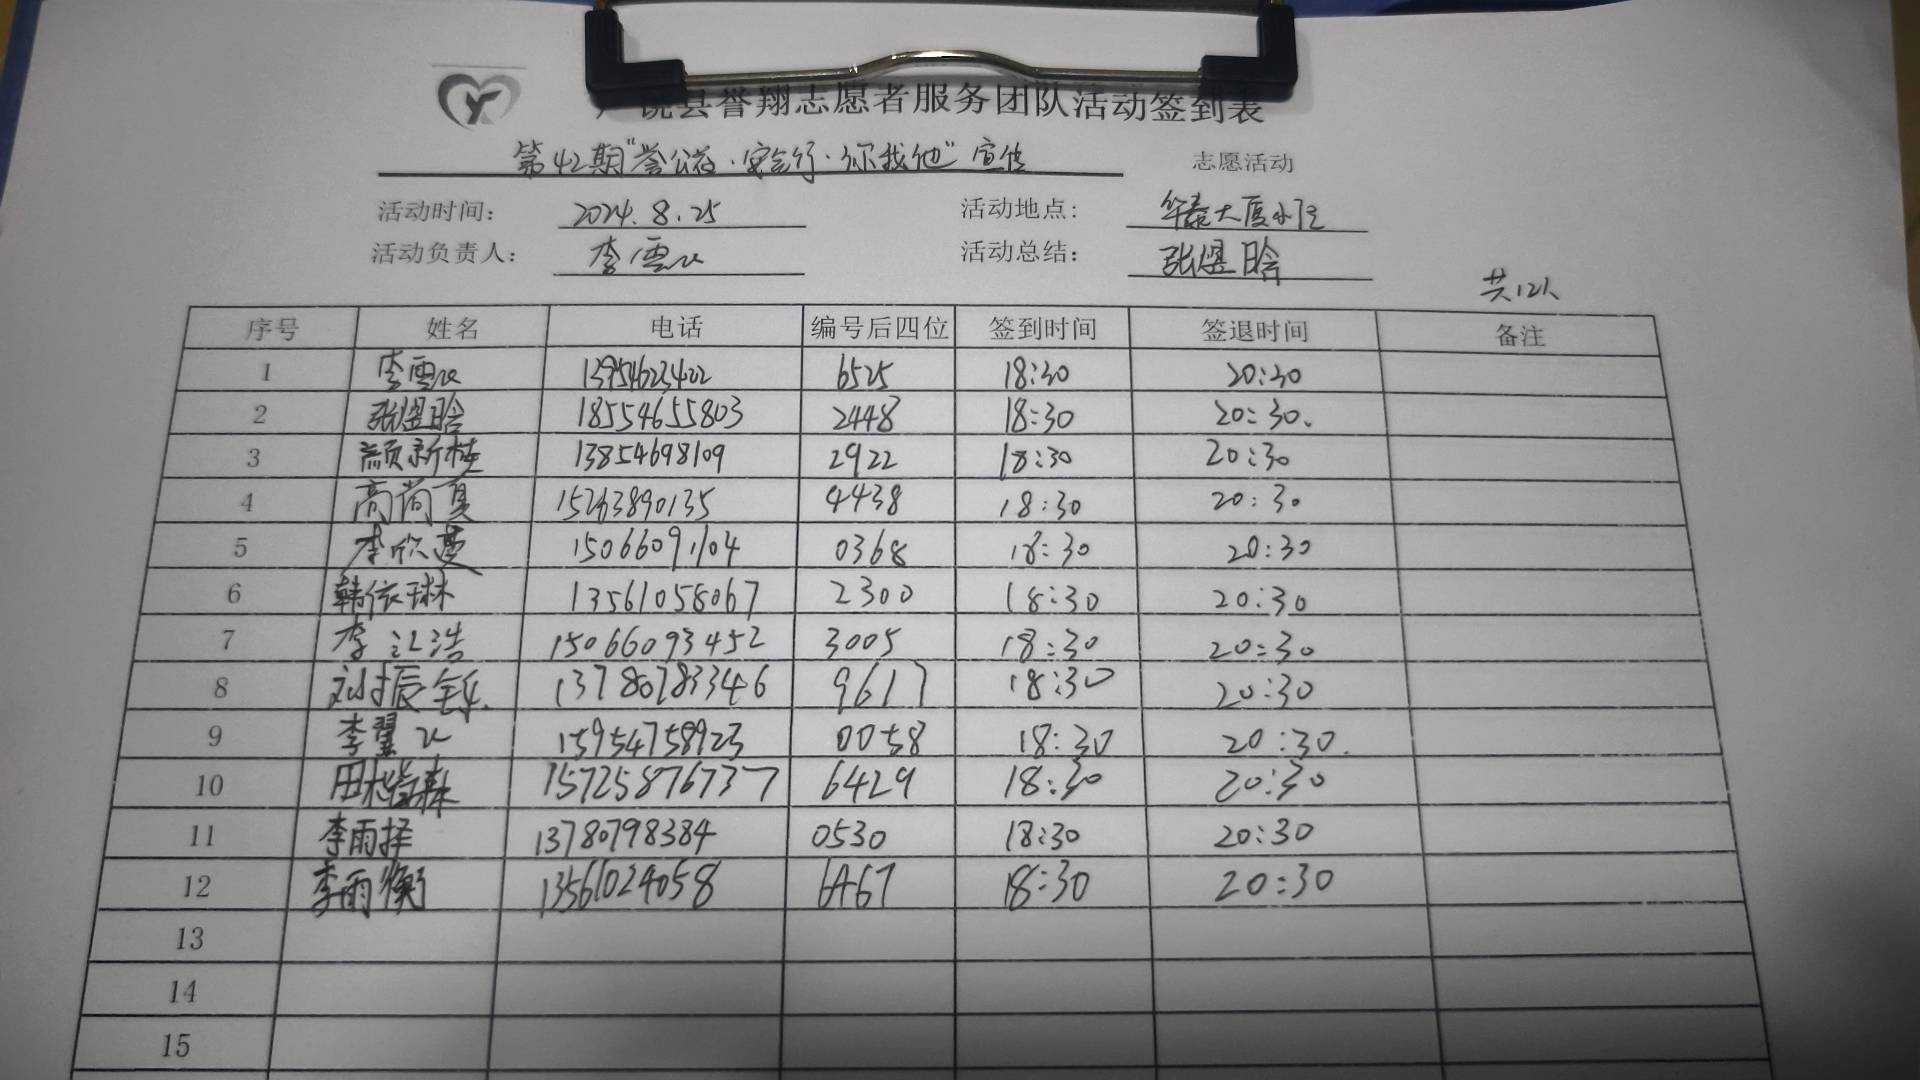 饶县誉翔志愿者服务团队活动签到表
第42期"誉公益·安全行·你我他"宣传 志愿活动
活动时间： 2024.8.25 活动地点： 华泰大厦
活动负责人： 李雪 活动总结： 张煜晗
共12人
序号 姓名 电话 编号后四位 签到时间 签退时间 备注
1 李雪 13954623422 6525 18:30 20:30
2 张煜晗 18554655803 2448 18:30 20:30.
3 颜新 13854698109 2922 18:30 20:30
4 高尚夏 15263890135 4438 18:30 20:30
5 李欣蔓 15066091104 0368 18:30 20:30
6 韩依琳 13561058067 2300 18:30 20:30
7 李江浩 15066093452 3005 18:30 20:30
8 刘振 13780783346 9617 18:30 20:30
9 李翼 15954758923 0058 18:30 20:30.
10 田楷霖 15725876737 6429 18:30 20:30
11 李雨择 13780798384 0530 18:30 20:30
12 李雨衡 13561024058 6467 18:30 20:30
13
14
15